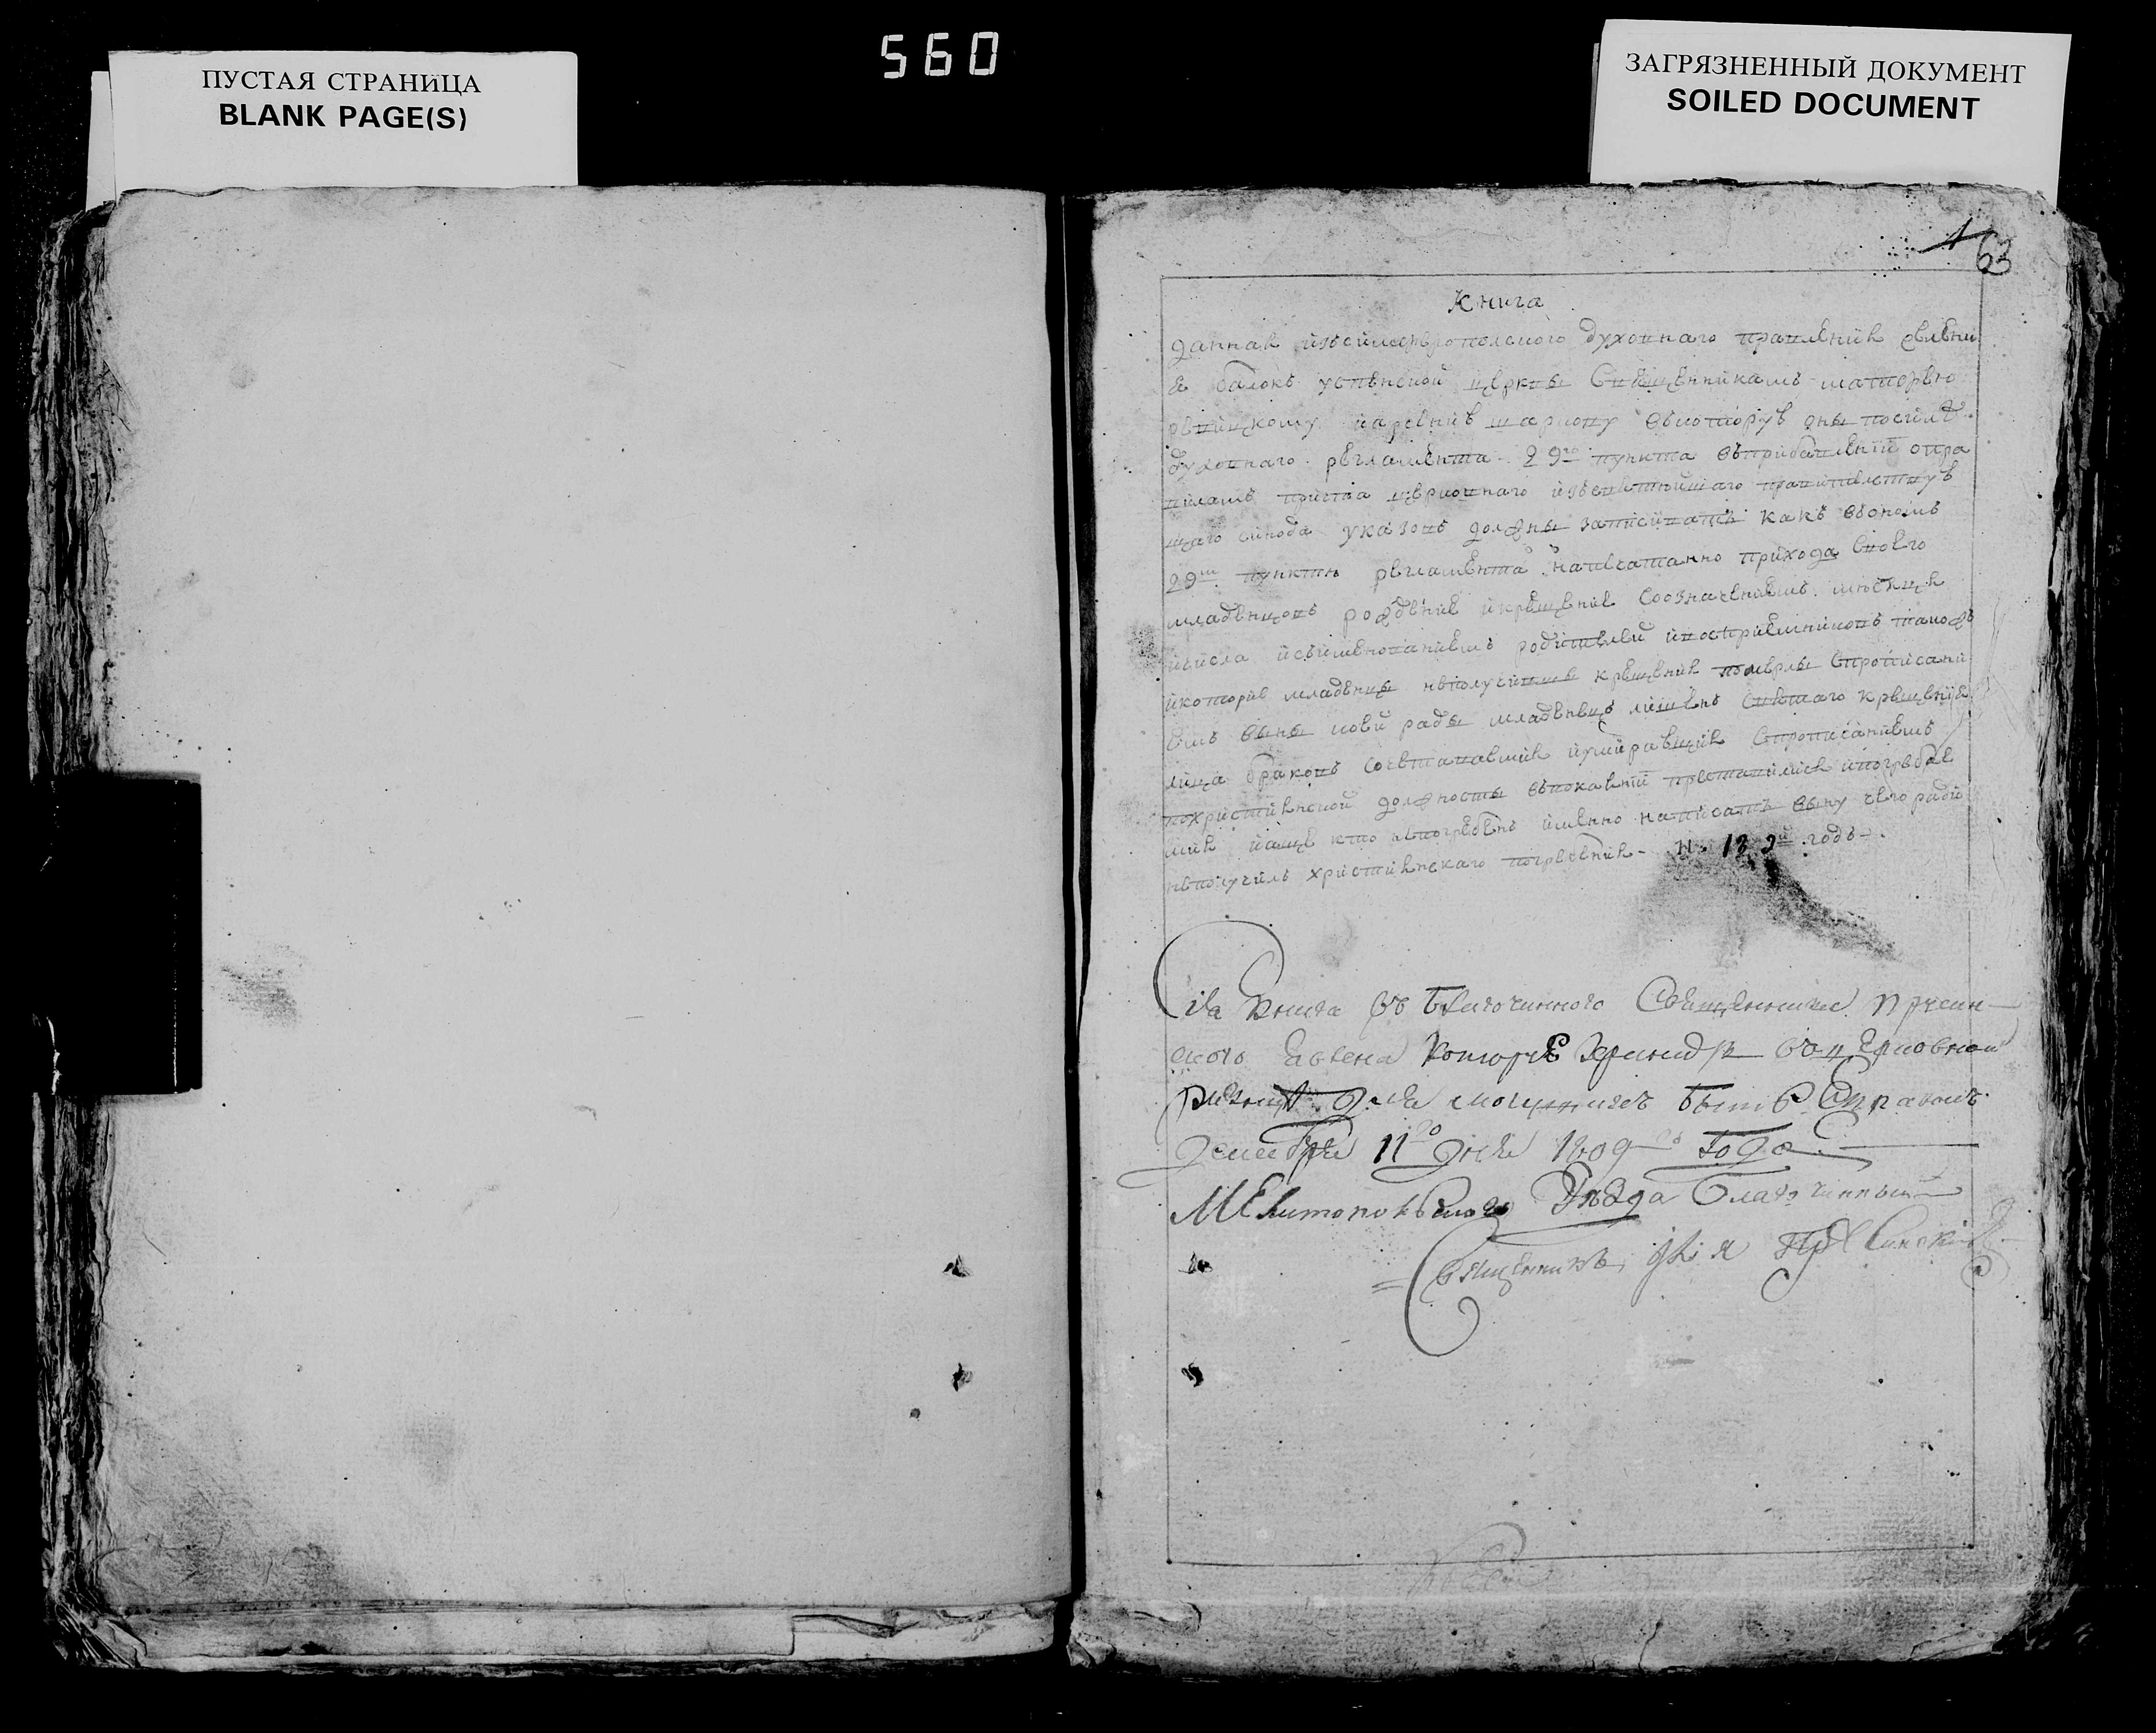 560
ПУСТАЯ СТРАНИЦА
BLANK PAGE(S)
ЗАГРЯЗНЕННЫЙ ДОКУМЕНТ
SOILED DOCUMENT
1
63
Книга
данная изъ духовнаго правления
балокъ успенской церквы священникамъ
по силѣ
духовнаго регламента 29го пункта въ прибавлении о пра
вилахъ причта церковнаго изъ святѣйшаго правительствую
щаго синода указовъ должны записивать какъ въ ономъ
29м пунктѣ регламента напечатанно прихода своего
младенцовъ рождение и крещение со означениемъ мѣсяця
и числа и съ именованиемъ родителей и восприемниковъ такожъ
и которие младенцы неполучивши крещения померлы с прописани
емъ вины коей рады младенецъ лишенъ святаго крещения
лица бракомъ сочетавшияя и умирающия с прописаниемъ
по християнской должносты в покаянии преставилися и погребае
мия и аще кто непогребенъ именно написать вину чего ради
неполучилъ християнскаго погребения - годъ
Сия книга въ благочинного священника
ского явлена
ризницѣ для могущихъ быть справокъ
декабря 11го дня 1809го года
Мелитопольского Уѣзда благочинный
священникъ